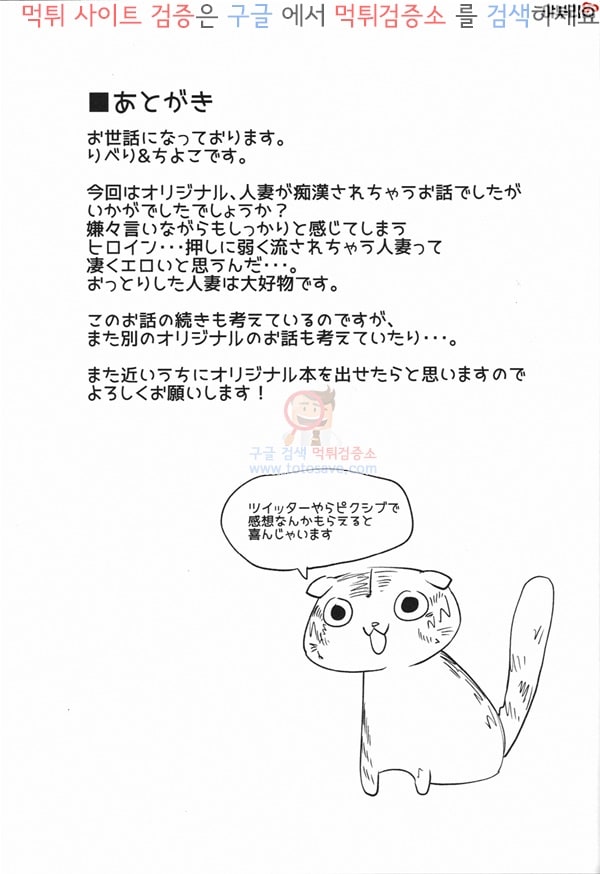 먹튀 사이트 검증은 구글 에서 먹튀검증소 를 검색하세요
■あとがき
お世話になっております。
りべり&ちよこです。
今回はオリジナル、人妻が痴漢されちゃうお話でしたが
いかがでしたでしょうか?
嫌々言いながらもしっかりと感じてしまう
ヒロイン・・・押しに弱く流されちゃう人妻って
凄くエロいと思うんだ・・・。
おっとりした人妻は大好物です。
このお話の続きも考えているのですが、
また別のオリジナルのお話も考えていたり・・・。
また近いうちにオリジナル本を出せたらと思いますので
よろしくお願いします!
구글 검색 먹튀검증소
www.totosave.com
ツイッターやらピクシブで
感想なんかもらえると
喜んじゃいます